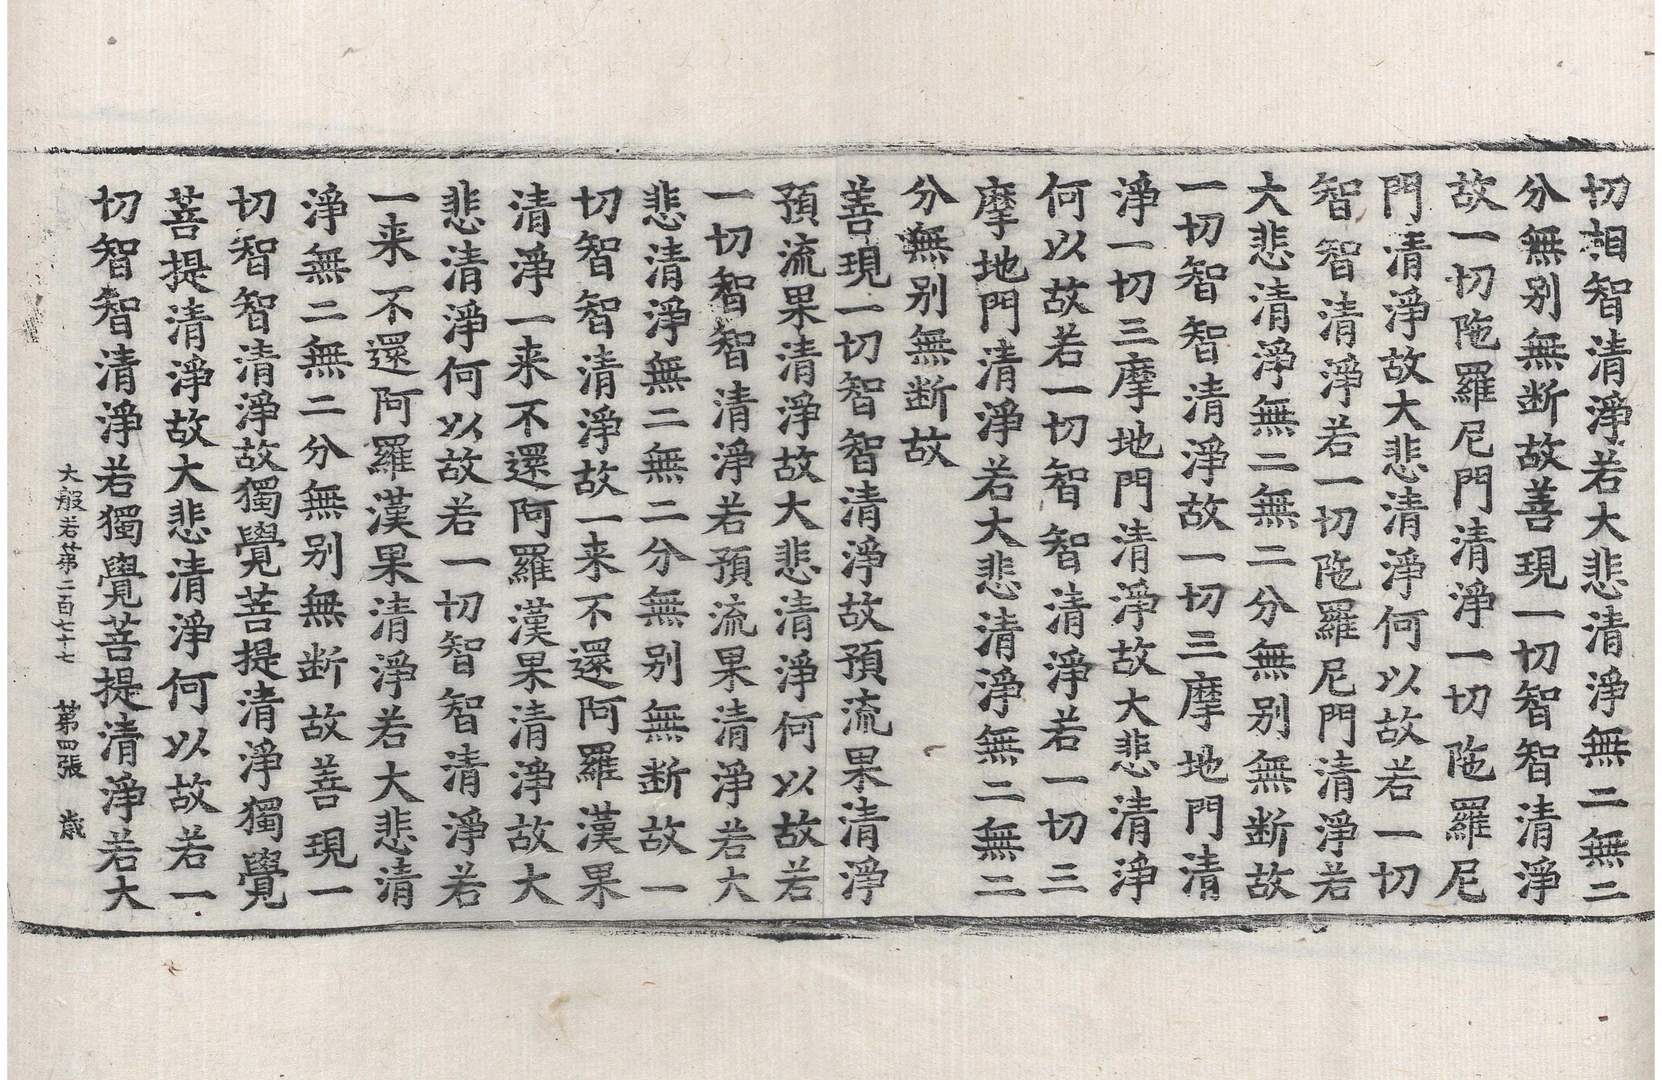 切相智清淨若大悲清淨無二無二
分無別無断故善現一切智智清淨
故一切陁羅尼門清淨一切陁羅尼
門清淨故大悲清淨何以故若一切
智智清淨若一切陁羅尼門清淨若
大悲清淨無二無二分無別無断故
一切智智清淨故一切三摩地門清
淨一切三摩地門清淨故大悲清淨
何以故若一切智智清淨若一切三
摩地門清淨若大悲清淨無二無二
分無別無断故
善現一切智智清淨故預流果清淨
預流果清淨故大悲清淨何以故若
一切智智清淨若預流果清淨若大
悲清淨無二無二分無別無断故一
切智智清淨故一来不還阿羅漢果
清淨一来不還阿羅漢果清淨故大
悲清淨何以故若一切智智清淨若
一来不還阿羅漢果清淨若大悲清
淨無二無二分無別無断故善現一
切智智清淨故獨覺菩提清淨獨覺
菩提清淨故大悲清淨何以故若一
切智智清淨若獨覺菩提清淨若大
大般若第二百七十七 第四張 歳